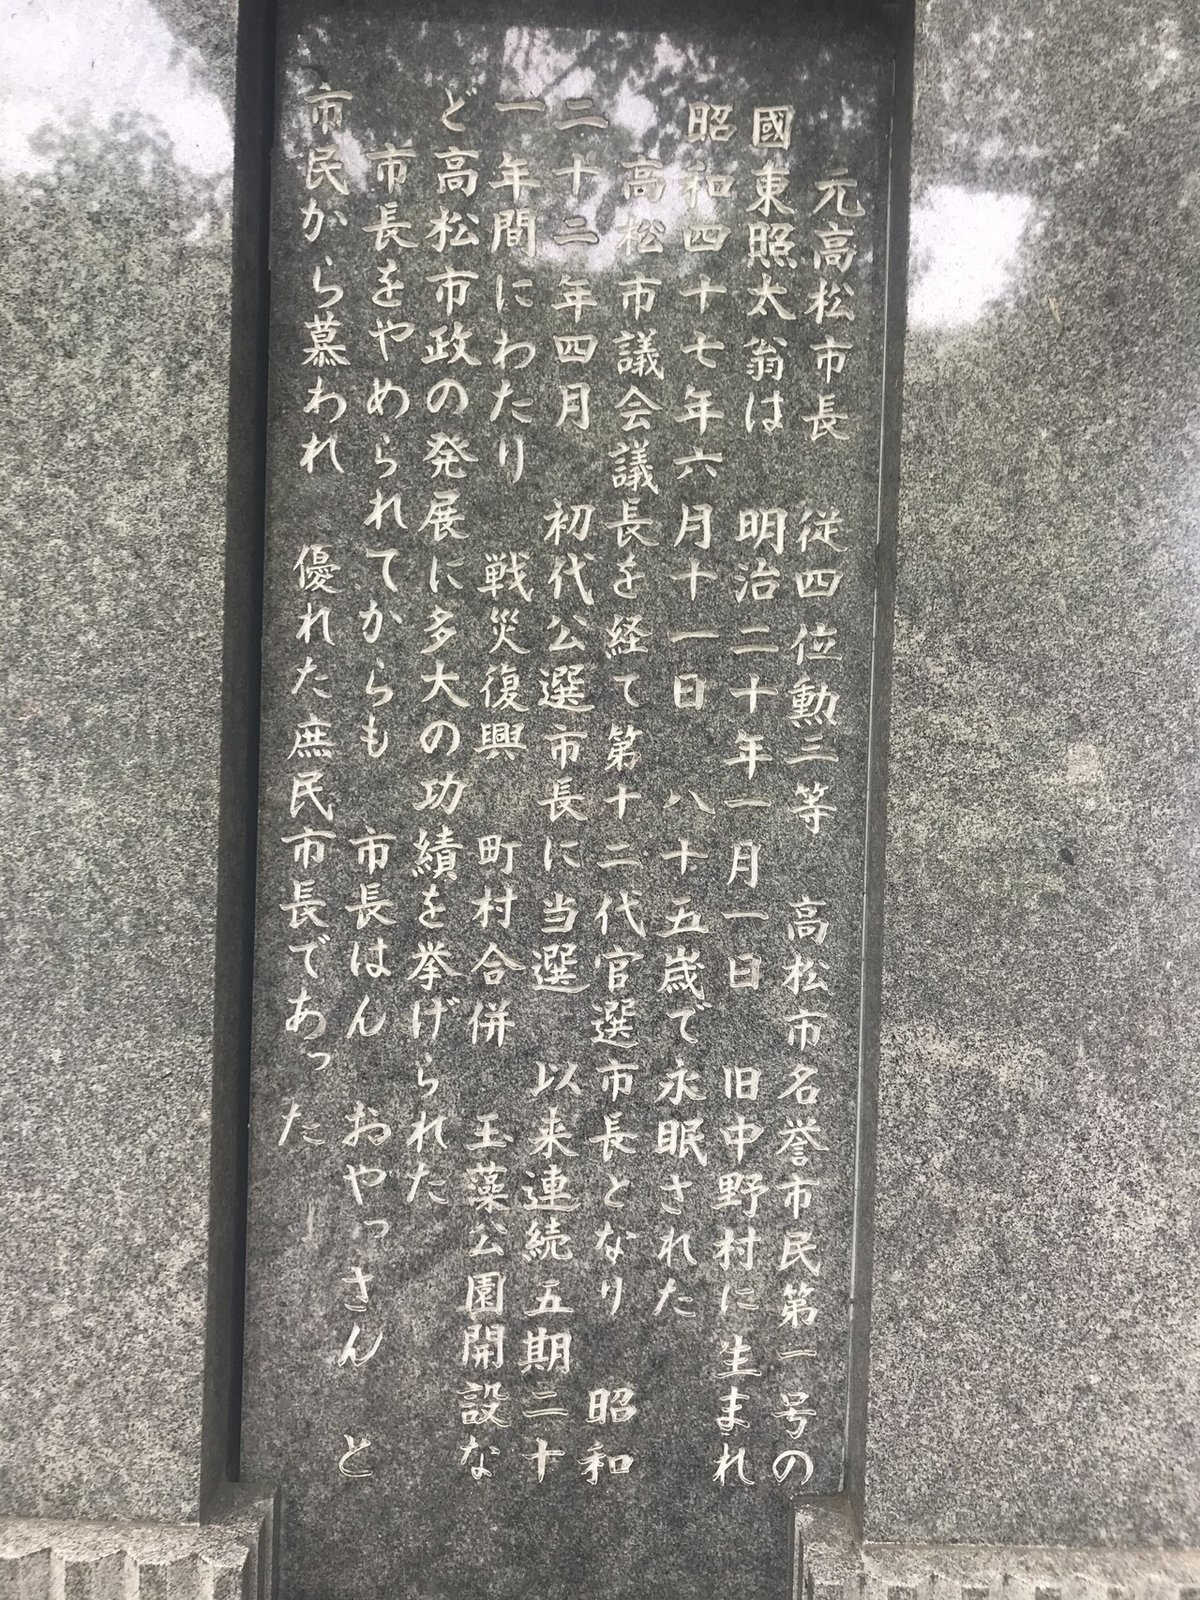 元高松市長　従四位勲三等　高松市名誉市民第一号の
國東照太翁は　明治二十年一月一日　旧中野村に生まれ
昭和四十七年六月十一日　八十五歳で永眠された
高松市議会議長を経て第十二代官選市長となり　昭和
二十二年四月　初代公選市長に当選　以来連続五期二十
一年間にわたり　戦災復興　町村合併　玉藻公園開設な
ど高松市政の発展に多大の功績を挙げられた
市長をやめられてからも　市長はん　おやっさん　と
市民から慕われ　優れた庶民市長であった